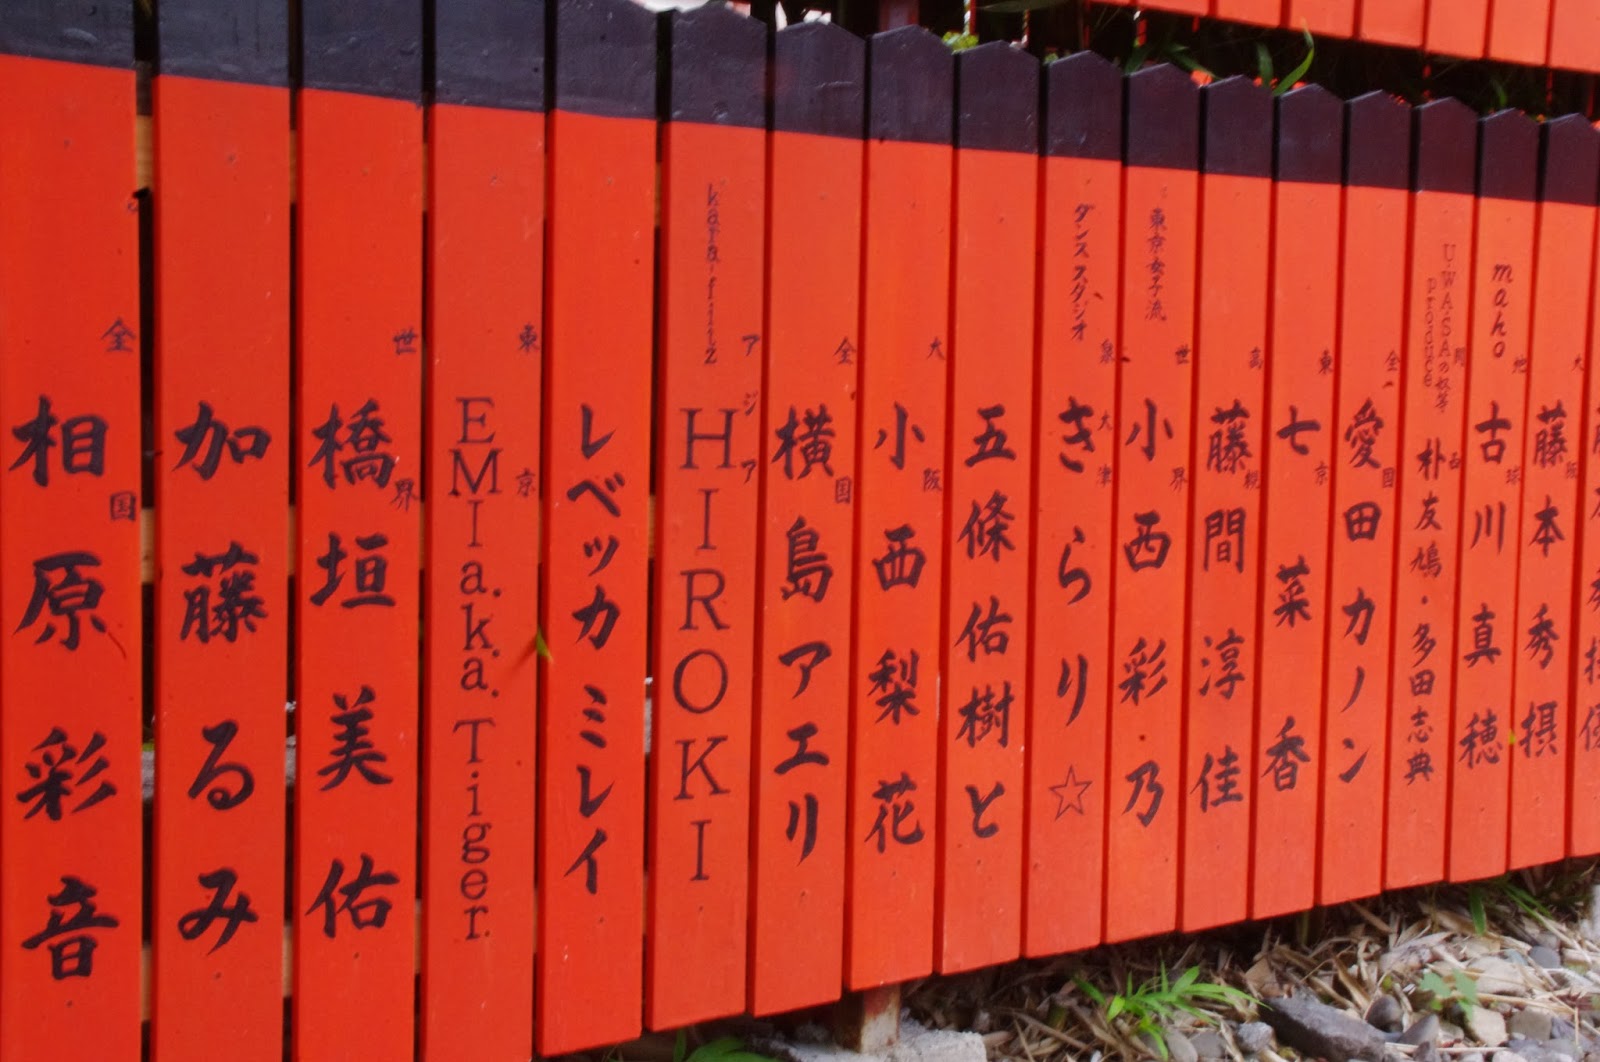 全国
相原彩音
加藤るみ
世界
橋垣美佑
東京
EMIa.k.a.Tiger.
レベッカミレイ
アジア
HIROKI
全国
横島アエリ
大阪
小西梨花
五條佑樹と
ダンススタジオ
泉大津
きらり☆
東京女子流
世界
小西彩乃
高槻
藤間淳佳
東京
七菜香
全国
愛田カノン
U.WA.SAの奴等
produce
関西
朴友鳩・多田志典
maho
地球
古川真穂
大阪
藤本秀摂